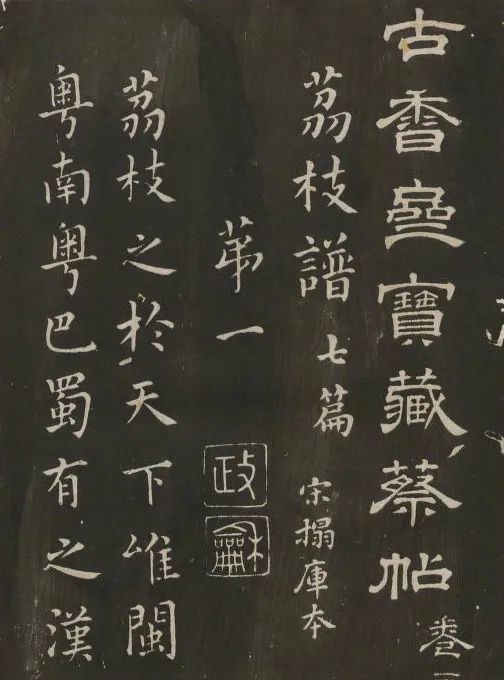 古香齋寶藏蔡帖 卷一
荔枝譜 七篇 宋搨庫本
第一
政
龢
荔枝之於天下唯閩
粵南粵巴蜀有之漢